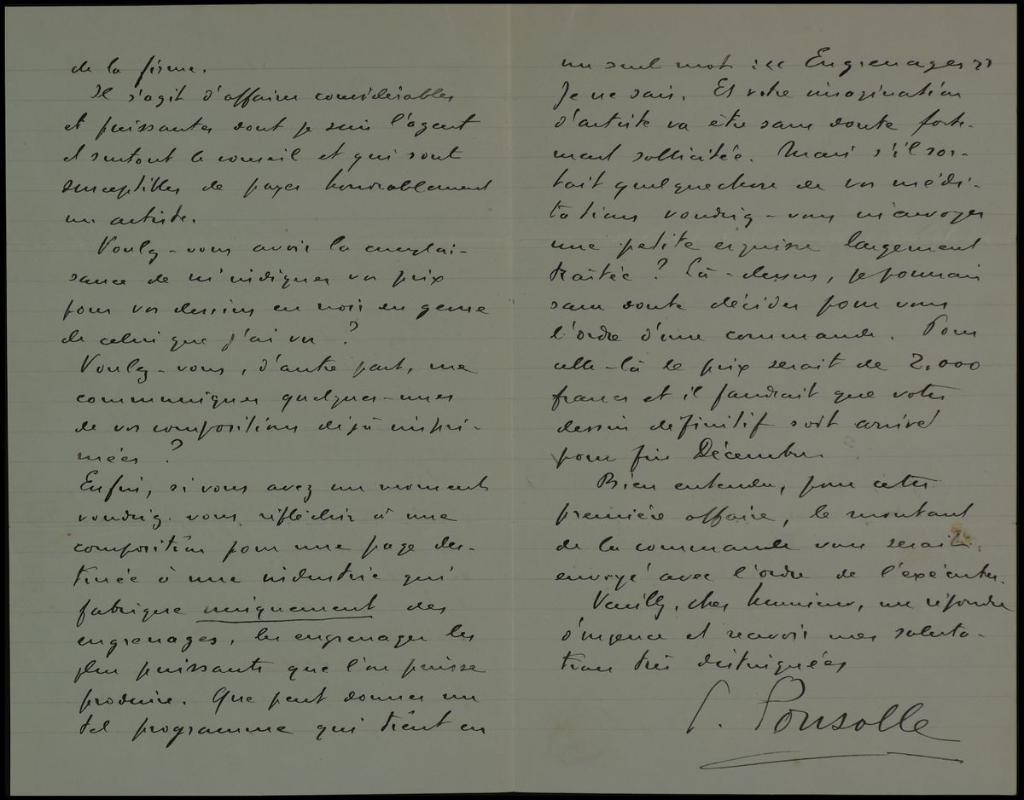 de la firme.
Il s'agit d'affaires considérables
et puissantes dont je suis l'agent
et surtout le conseil et qui sont
susceptibles de payer honorablement
un artiste.
Voulez-vous avoir la complai-
sance de m'indiquer vos prix
pour vos dessins en noir en genre
de celui que j'ai vu ?
Voulez-vous, d'autre part, me
communiquer quelques-unes
de vos compositions déjà impri-
mées ?
Enfin, si vous avez un moment
voudriez-vous réfléchir à une
composition pour une page des-
tinée à une industrie qui
fabrique uniquement des
engrenages, les engrenages les
plus puissants que l'on puisse
produire. Que peut donner un
tel programme qui tient en
un seul mot : « Engrenages »
Je ne sais. Et votre imagination
d'artiste va être sans doute forte-
ment sollicitée. Mais s'il sor-
tait quelquechose de vos médi-
tations voudriez-vous m'envoyer
une petite esquisse largement
traitée ? Là-dessus, je pourrais
sans doute décider pour vous
l'ordre d'une commande. Pour
celle-là le prix serait de 2.000
francs et il faudrait que votre
dessin définitif soit arrivé
pour fin Décembre.
Bien entendu, pour cette
première affaire, le montant
de la commande vous serait
envoyé avec l'ordre de l'exécuter.
Veuillez, cher Monsieur, me répondre
d'urgence et recevoir mes saluta-
tions très distinguées
P. Ponsolle